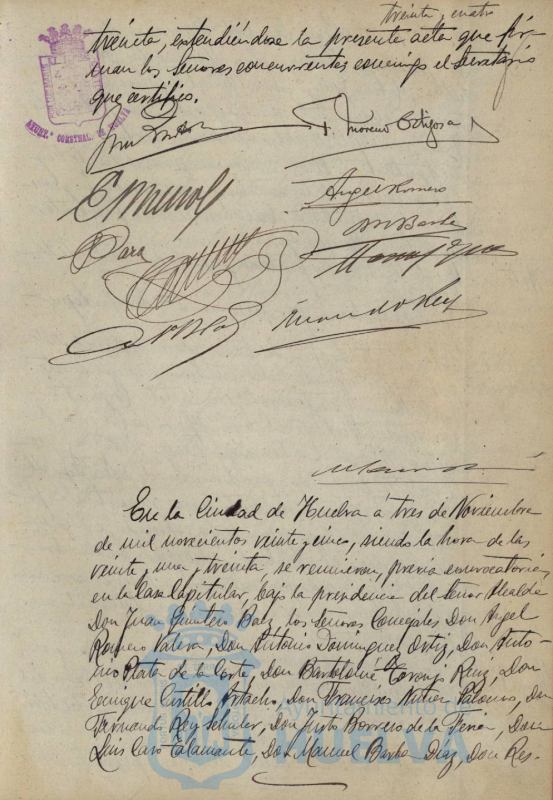 treinta y cuatro
treinta, extendiéndose la presente acta que fir-
man los señores concurrentes conmigo el Secretario
que certifico.
AYUNT.º CONSTNAL. DE HUELVA
F. Moreno Ortigosa
Angel Romero
Para
M Barba
Fernando Rey
En la Ciudad de Huelva á tres de Noviembre
de mil novecientos veinte y cinco, siendo la hora de las
veinte y una y treinta, se reunieron, previa convocatoria,
en la Casa Capitular, bajo la presidencia del señor Alcalde
Don Juan Quintero Baez, los señores Concejales Don Angel
Romero Valera, Don Antonio Dominguez Ortiz, Don Anto-
nio Plata de la Corte, Don Bartolomé Toronjo Ruiz, Don
Enrique Castillo Don Francisco Palomo, Don
Fernando Rey Don Justo Borrero de la Feria, Don
Luis Caro Talamante, Don Manuel Barba Diaz, Don Res-
Ayuntamiento de
HUELVA